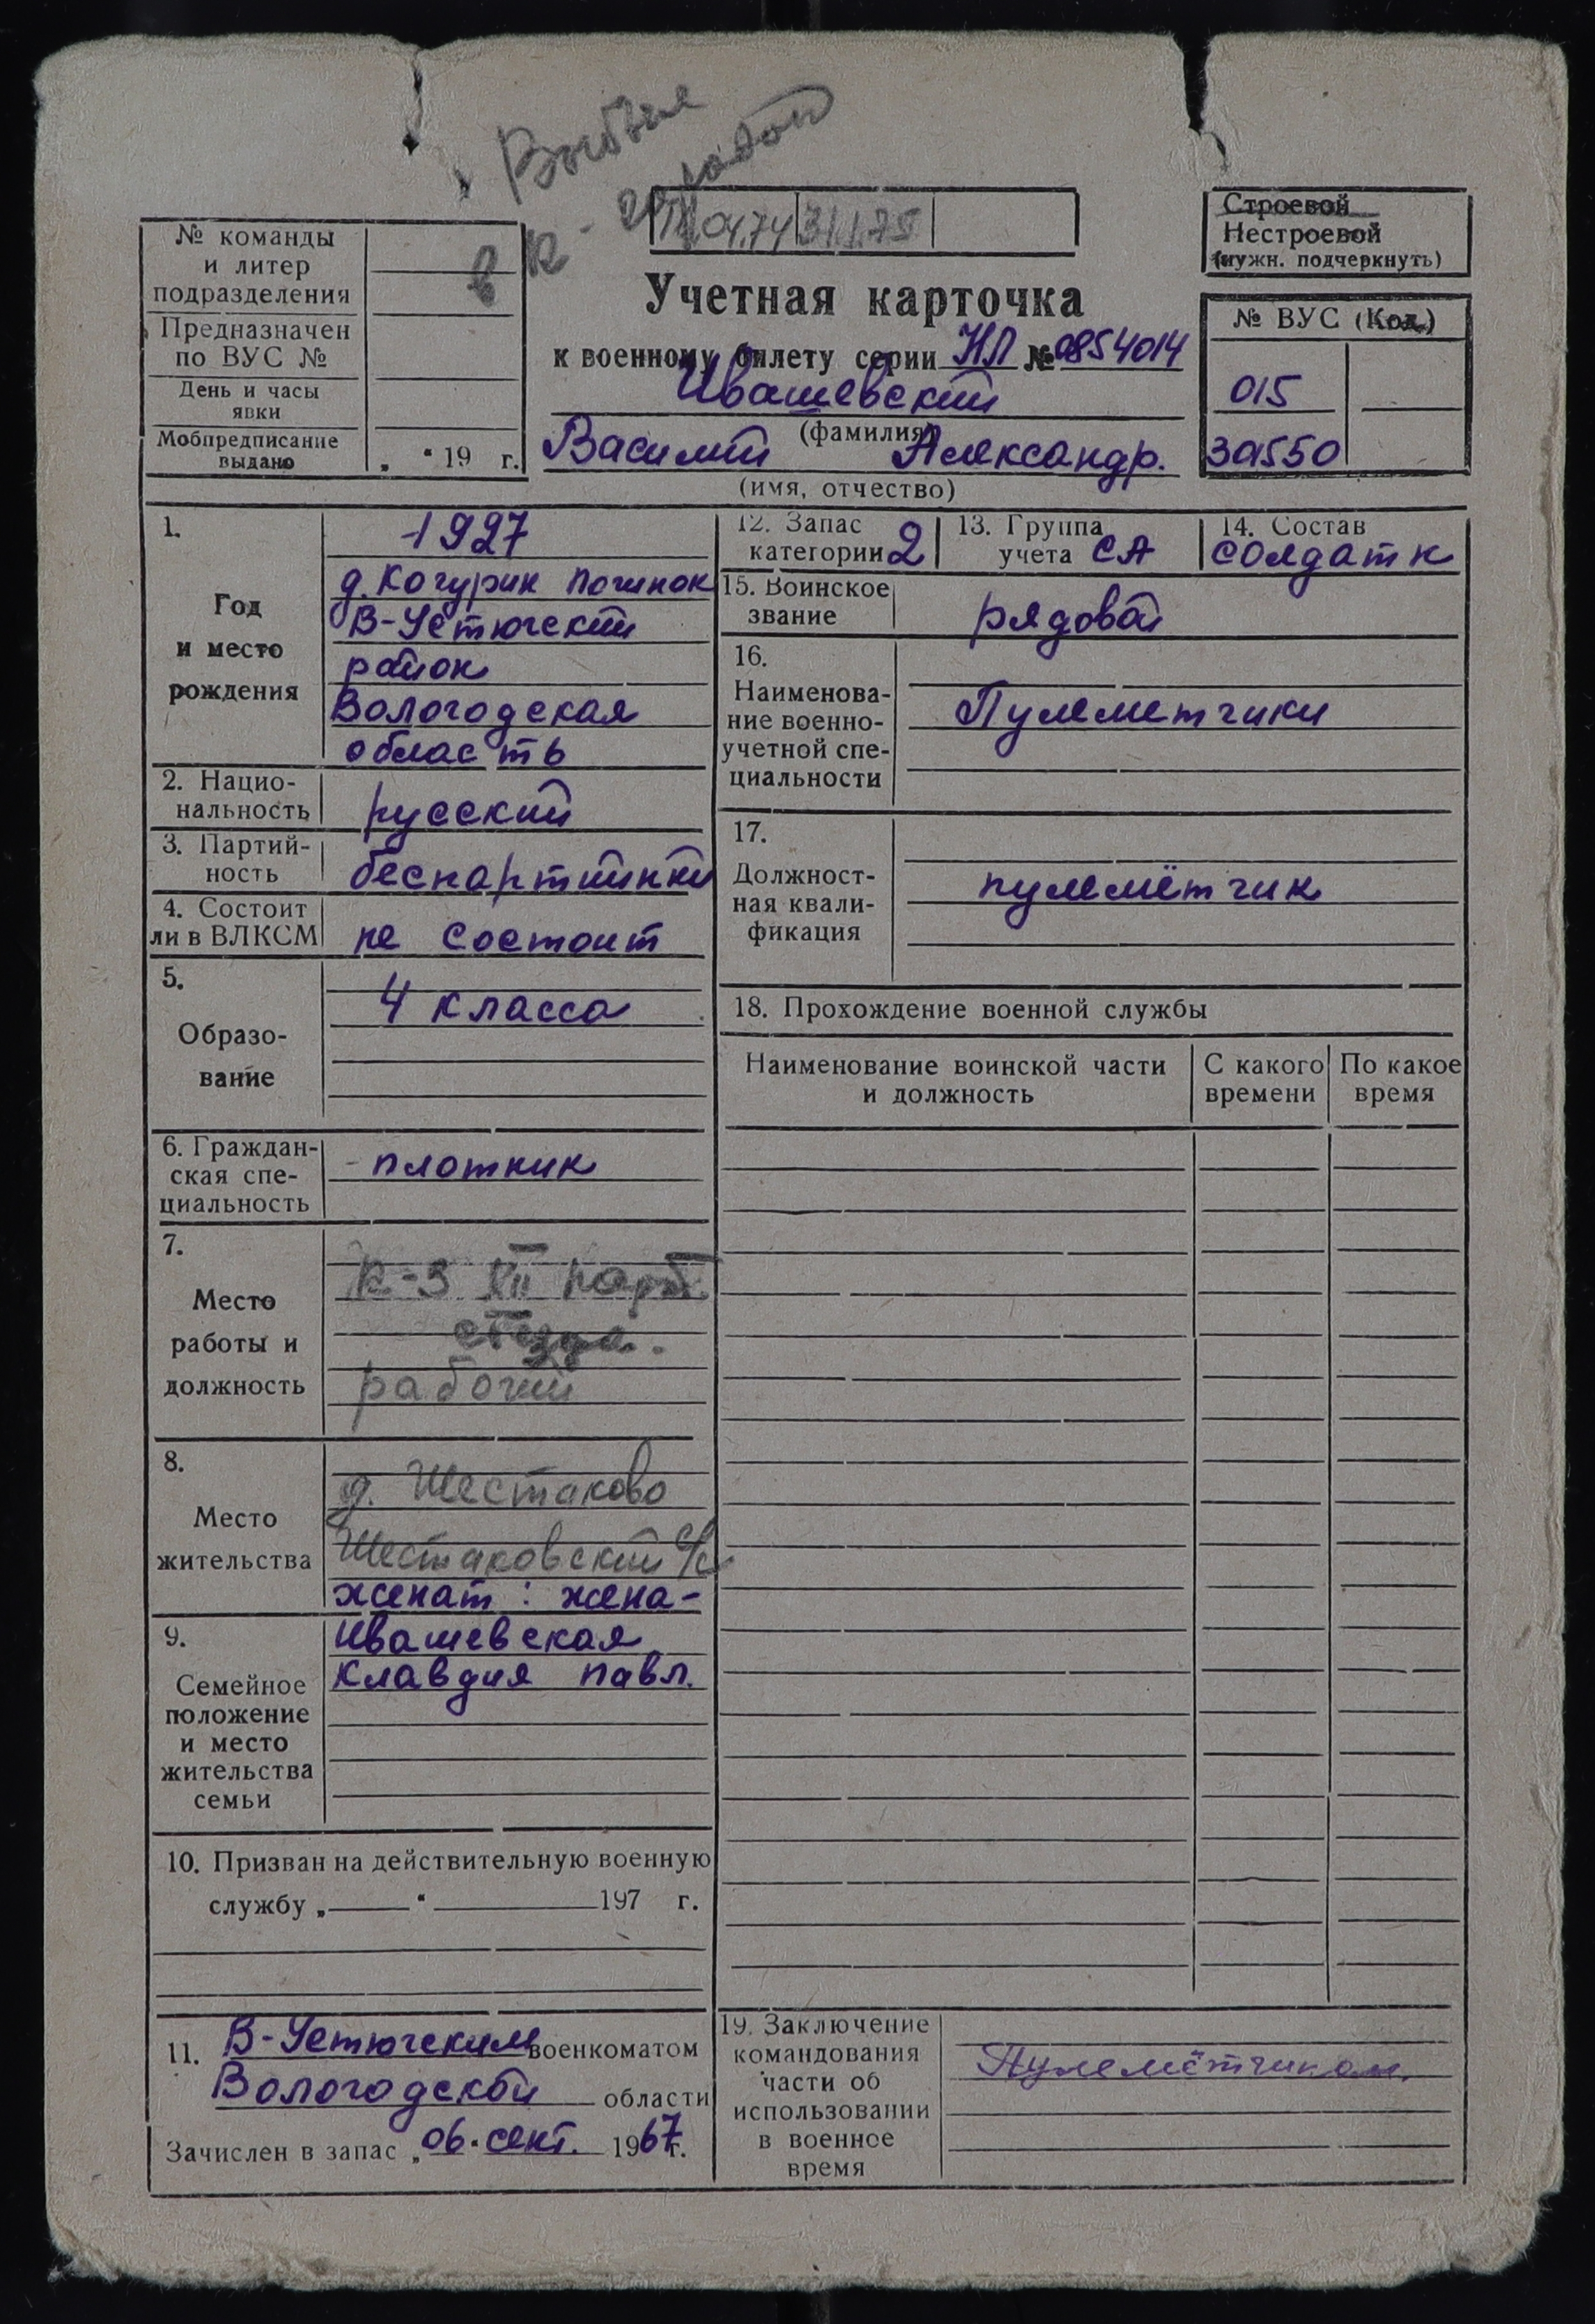 Выбыл
в К-
район
04.74 31.1.75
Строевой
Нестроевой
(нужн. подчеркнуть)
№ команды
и литер
подразделения
Предназначен
по ВУС №
День и часы
явки
Мобпредписание
выдано „ “ 19 г.
Учетная карточка
к военному билету серии НЛ № 0854014
Ивашевский
(фамилия)
Василий Александр.
(имя, отчество)
№ ВУС (Код)
015
30550
1.
Год
и место
рождения
1927
д. Кочурин Починок
В-Устюгский
район
Вологодская
область
2. Нацио-
нальность русский
3. Партий-
ность беспартийный
4. Состоит
ли в ВЛКСМ не состоит
5.
Образо-
вание
4 класса
6. Граждан-
ская спе-
циальность
плотник
7.
Место
работы и
должность
к-з XII парт
съезда.
рабочий
8.
Место
жительства
д. Шестаково
Шестаковский с/с
женат: жена-
9.
Семейное
положение
и место
жительства
семьи
Ивашевская
Клавдия Павл.
10. Призван на действительную военную
службу „ “ 197 г.
11. В-Устюгским военкоматом
Вологодской области
Зачислен в запас „06. сент. 1967 г.
12. Запас
категории 2
13. Группа
учета СА
14. Состав
солдатк
15. Воинское
звание рядовой
16.
Наименова-
ние военно-
учетной спе-
циальности
Пулеметчики
17.
Должност-
ная квали-
фикация
пулемётчик
18. Прохождение военной службы
Наименование воинской части
и должность
С какого
времени
По какое
время
19. Заключение
командования
части об
использовании
в военное
время
Пулемётчиком.